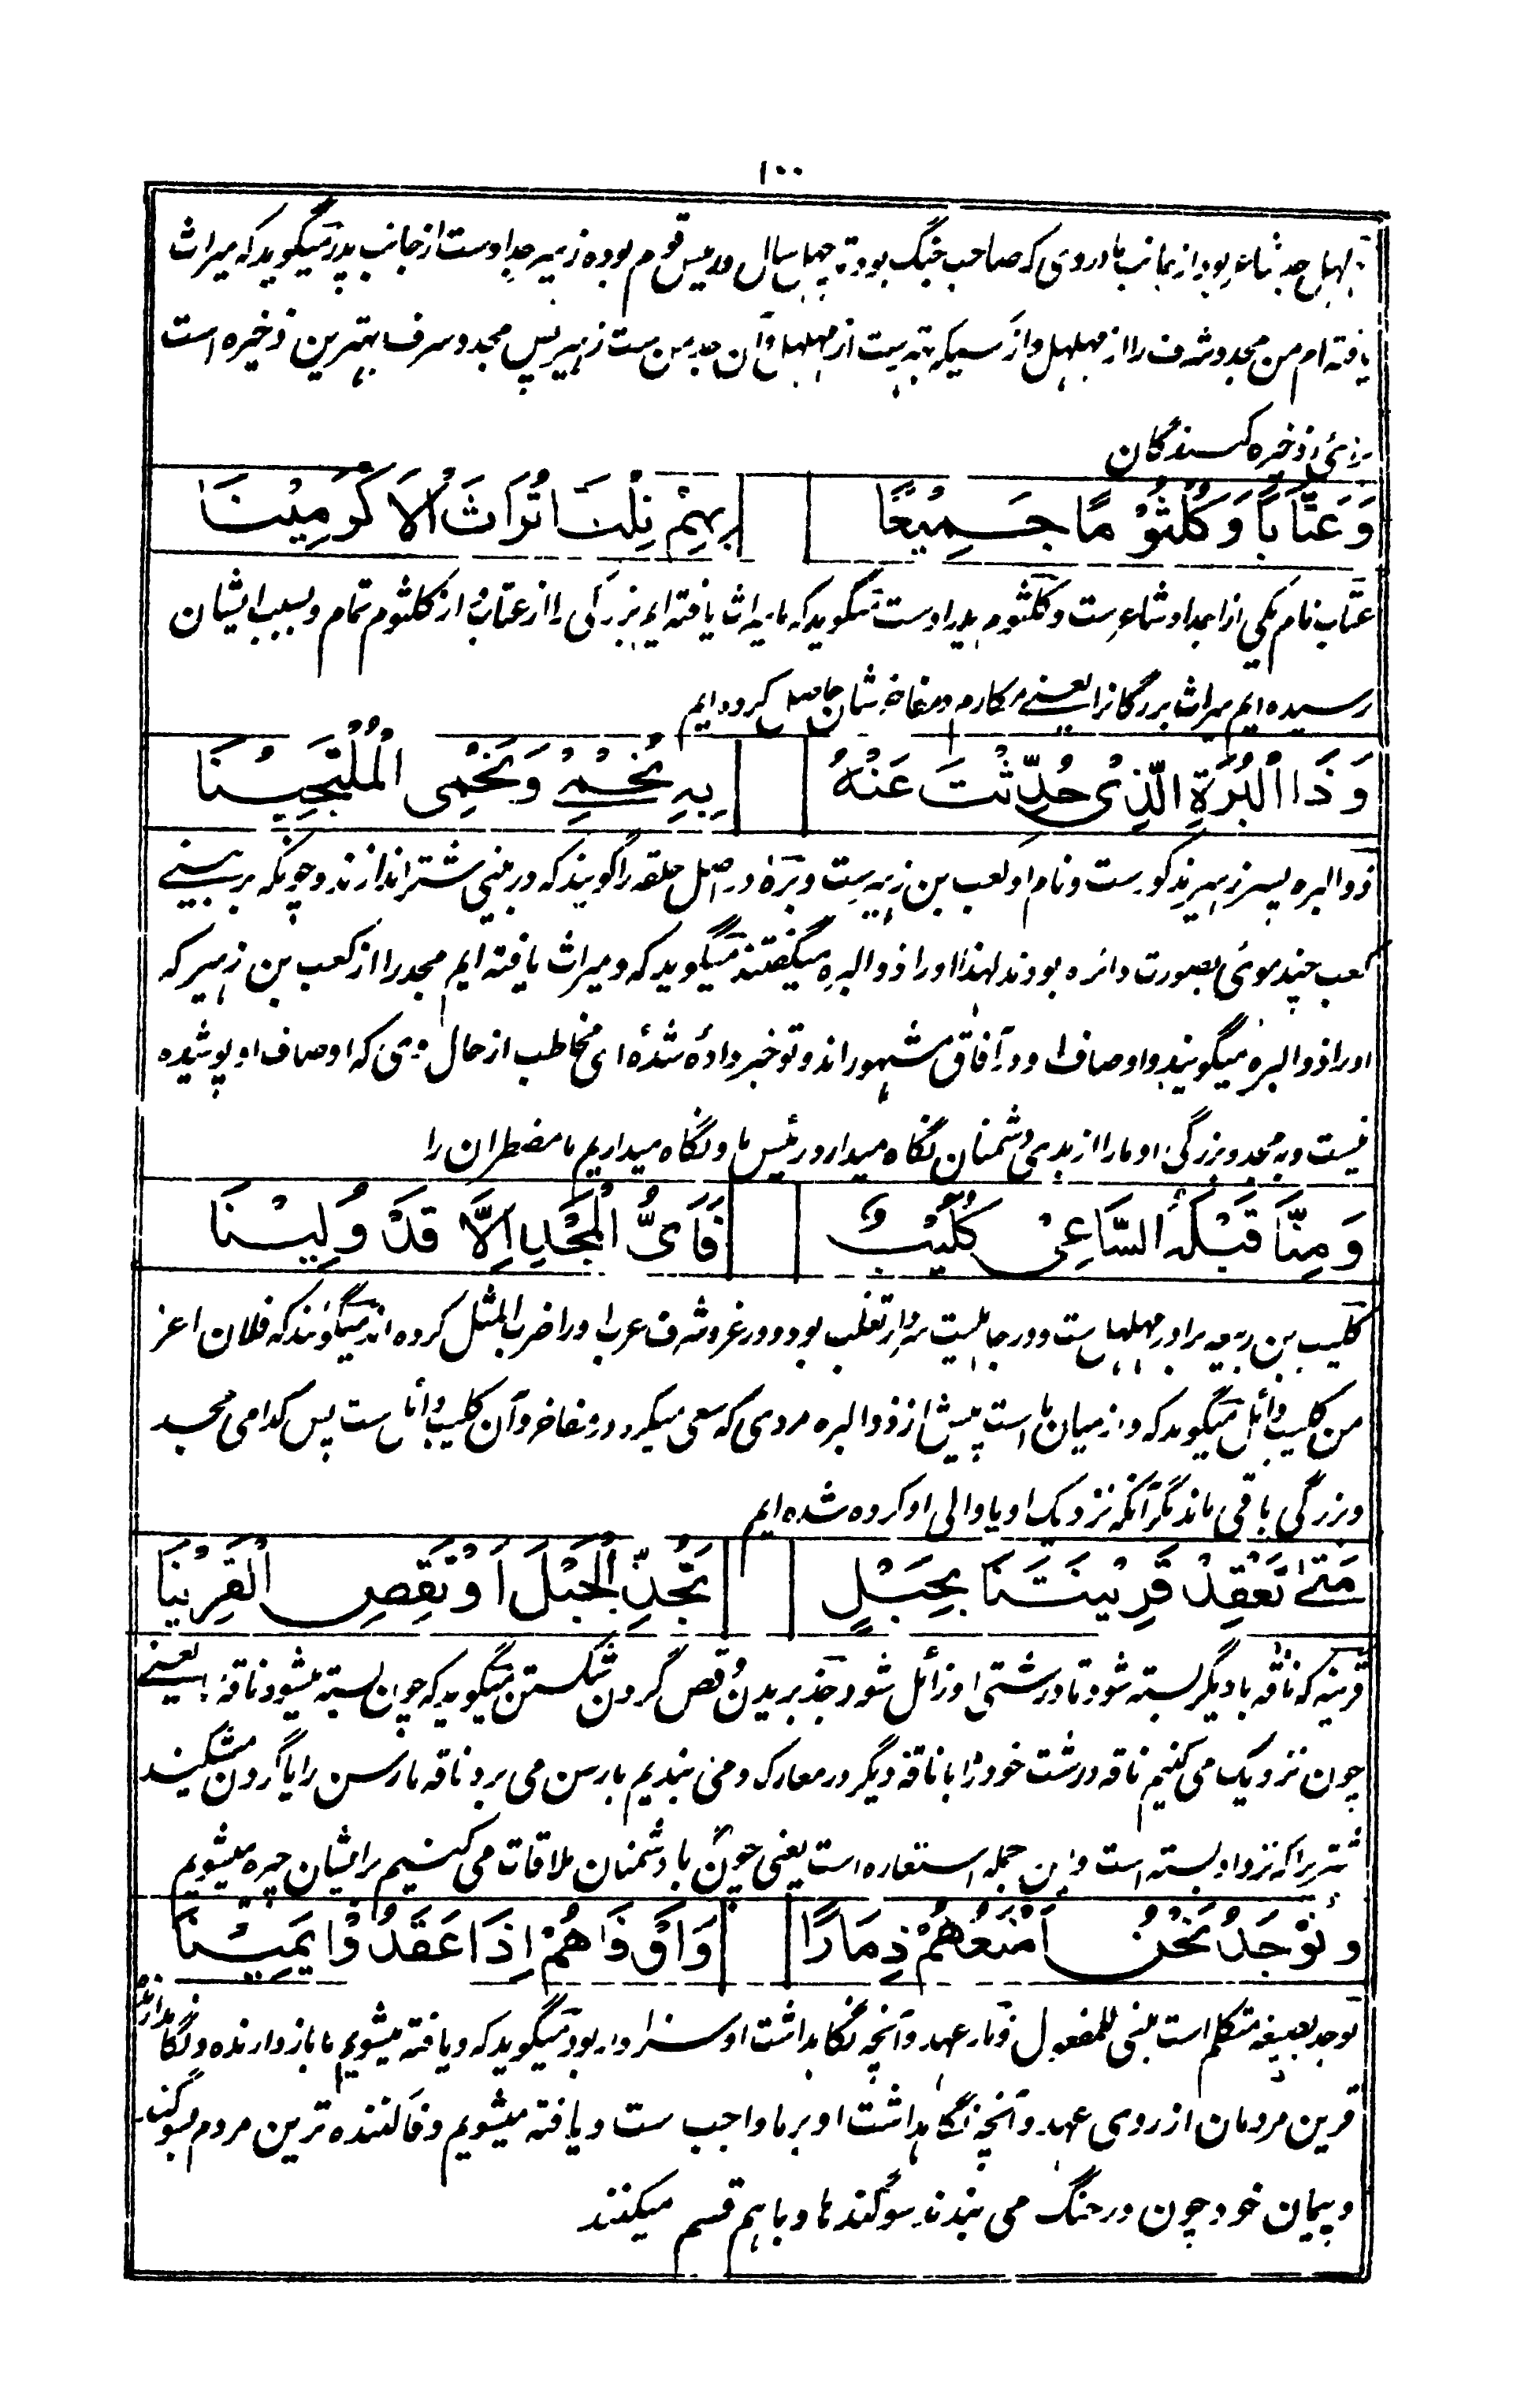 ۱۰۰
مهلهل جد شاعر بود از جانب مادر وی که صاحب جنگ بود تا چهل سال و رئیس قوم بوده زهیر جد اوست از جانب پدر میگوید که میراث
یافته ام من مجد و شرف را از مهلهل و از کسیکه بهترست از مهلهل و آن جد من ست زهیر پس مجد و شرف بهترین ذخیره است
برای ذخیره کنندگان
وَعَتَّابًا وَكُلْثُوْمًا جَمِيْعًا بِهِمْ نِلْنَا تُرَاثَ الْاَكْرَمِيْنَا
عتاب نام یکی از اجداد شاعرست و کلثوم پدر اوست میگوید که ما میراث یافته ایم بزرگی را از عتاب و از کلثوم تمام و بسبب ایشان
رسیده ایم میراث بزرگانرا یعنی مکارم و مفاخر شان حاصل کرده ایم
وَذَا الْبُرَةِ الَّذِىْ حُدِّثْتَ عَنْهُ بِهِ نُحْمٰى وَنَحْمِى الْمُلْتَجِيْنَا
ذو البره پسر زهیر مذکورست و نام او کعب بن زهیرست و بره در اصل حلقه را گویند که در بینی شتر اندازند و چونکه بر بینی
کعب چند موی بصورت دائره بودند لهذا او را ذو البره میگفتند میگوید که و میراث یافته ایم مجد را از کعب بن زهیر که
او را ذو البره میگویند و اوصاف او در آفاق مشهور اند و تو خبر داده شدهٔ ای مخاطب از حال وی که اوصاف او پوشیده
نیست و به مجد و بزرگی او ما را از بدی دشمنان نگاه میدارد رئیس ما و نگاه میداریم ما مضطران را
وَمِنَّا قَبْلَهُ السَّاعِىْ كُلَيْبٌ فَاَىُّ الْمَجْدِ اِلَّا قَدْ وُلِيْنَا
کلیب بن ربیعه برادر مهلهل ست و در جاهلیت سردار تغلب بود و در عز و شرف عرب او را ضرب المثل کرده اند میگویند که فلان اعز
من کلیب وائل میگوید که و از میان ما است پیش از ذو البره مردی که سعی میکرد در مفاخر و آن کلیب وائل ست پس کدامی مجد
و بزرگی باقی ماند مگر آنکه نزدیک او یا والی او کرده شده ایم
مَتٰى نَعْقِدْ قَرِيْنَتَنَا بِحَبْلٍ نَجُذِّ الْحَبْلَ اَوْ نَقِصِ الْقَرِيْنَا
قرینه که ناقه با دیگر بسته شود تا درشتی او زائل شود جذ بریدن و قص گردن شکستن میگوید که چون بسته میشود ناقه ما یعنی
چون نزدیک می کنیم ناقه درشت خود را با ناقه دیگر در معارک و می بندیم با رسن می برد ناقه ما رسن را یا گردن میشکند
شتریرا که نزد او بسته است و این جمله استعاره است یعنی چون با دشمنان ملاقات می کنیم بر ایشان چیره میشویم
وَنُوْجَدُ نَحْنُ اَمْنَعُهُمْ ذِمَارًا وَاَوْفَاهُمْ اِذَا عَقَدُوْا يَمِيْنَا
نوجد بصیغه متکلم است مبنی للمفعول ذمار عهد و آنچه نگاهداشت او سزاوار بود میگوید که و یافته میشویم ما باز دارنده و نگاهدارنده
ترین مردمان از روی عهد و آنچه نگاهداشت او بر ما واجب ست و یافته میشویم وفا کننده ترین مردم بسوگند
و پیمان خود چون در جنگ می بندند سوگندها و باهم قسم میکنند